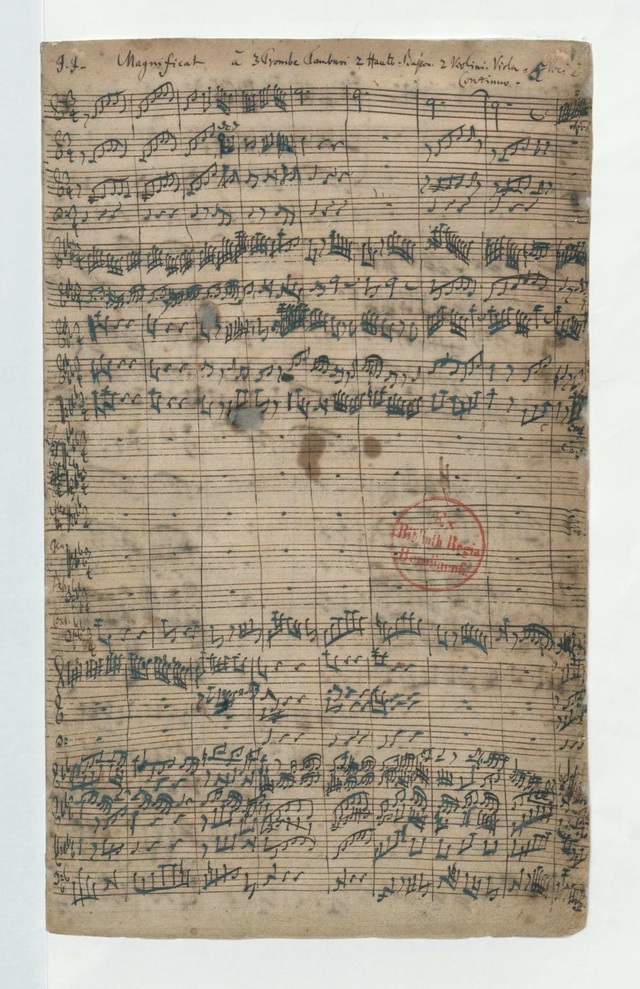 J. J. Magnificat à 3 Trombe Tamburi 2 Hautb. Basson. 2 Violini. Viola. 5 Voci è
Continuo.
Ex
Biblioth. Regia
Berolinensi.